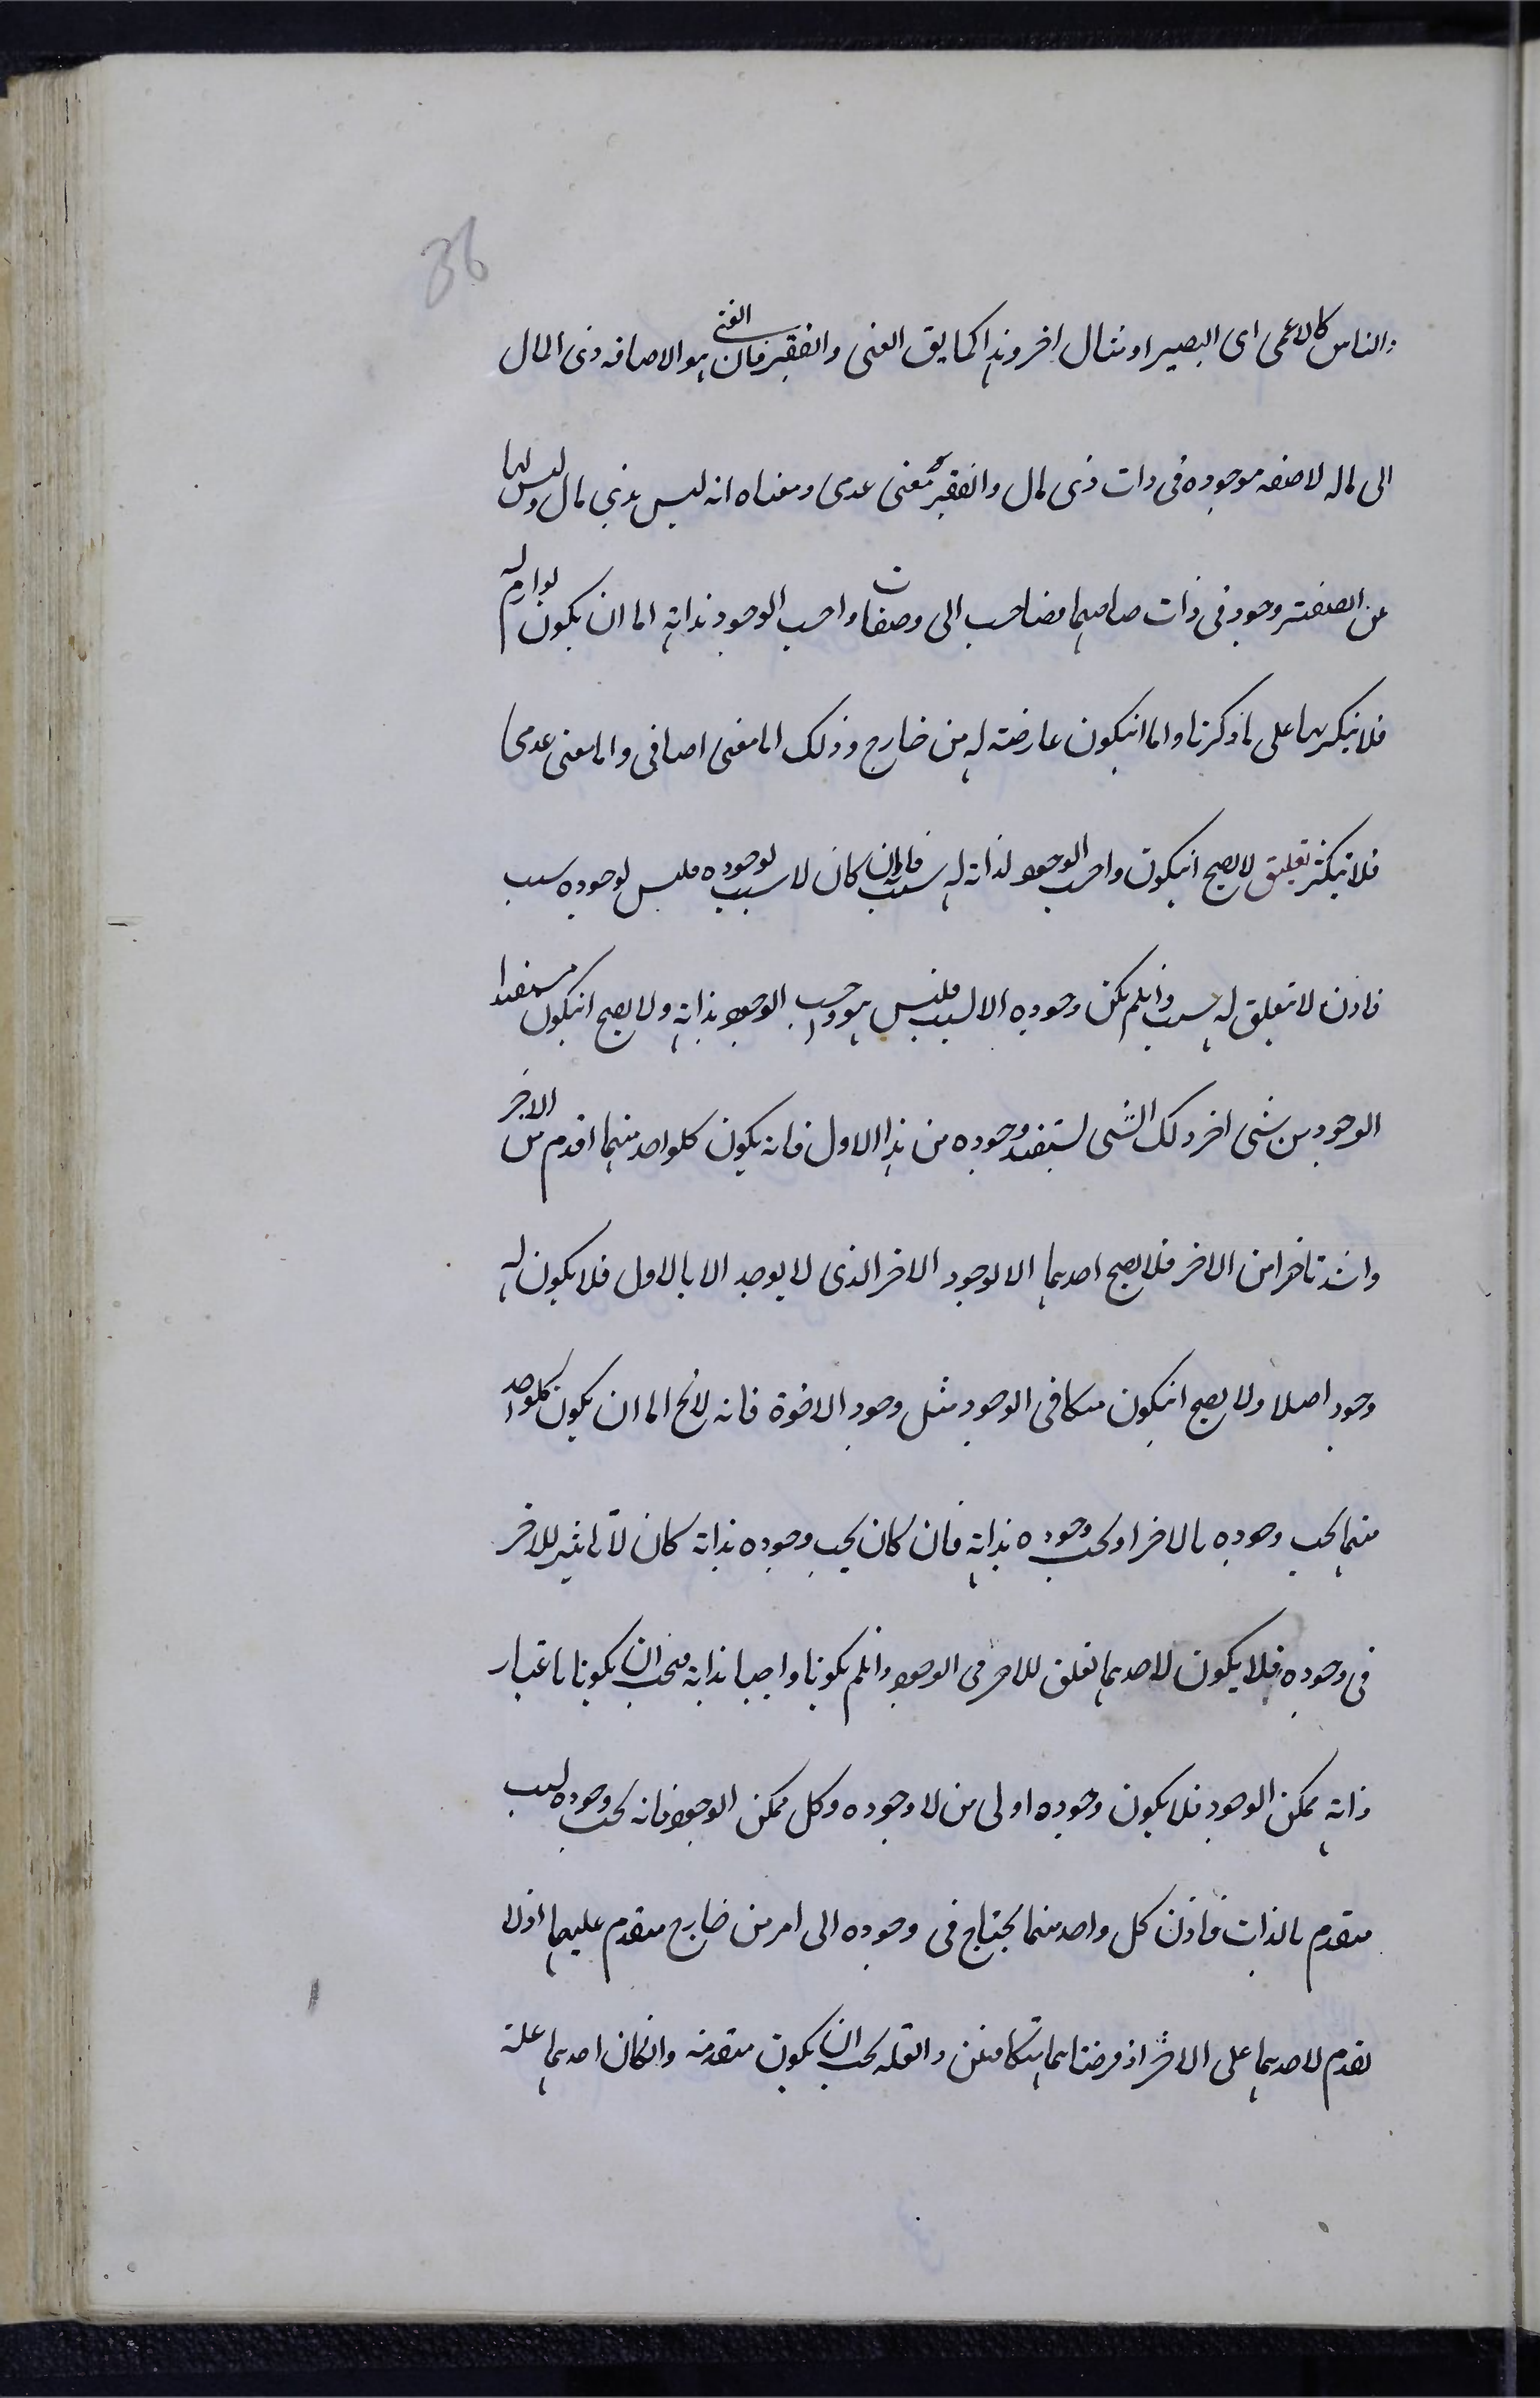 36
والناس كالاعمى اى البصير او مثال اخر وهذا كما يق الغنى والفقير فان الغنى هو الاضافه ذى المال
الى ماله لا صفه موجوده فى ذات ذى مال والفقير معنى عدمى ومعناه انه ليس بذى مال وليس لها
من الصفتين وجود فى ذات صاحبهما وصفات واجب الوجود بذاته اما ان يكون لوازم له
فلا تتكثر بها على ما ذكرنا واما انيكون عارضته له من خارج وذلك اما معنى اضافى واما معنى عدمى
فلا تتكثر تعليق لا يصح انيكون واجب الوجود لذاته له سبب فانه ان كان لا سبب لوجوده فليس لوجوده سبب
فاذن لا تتعلق له بسبب وانلم يكن وجوده الا لسبب فليس هو واجب الوجود بذاته ولا يصح انيكون مستفيدا
الوجود من شى اخر ذلك الشى يستفيد وجوده من هذا الاول فانه يكون كلواحد منهما اقدم من الاخر
واشد تاخرا من الاخر فلا يصح احدهما الا لوجود الاخر الذى لا يوجد الا بالاول فلا يكون له
وجود اصلا ولا يصح انيكون متكافى الوجود مثل وجود الاخوة فانه لا يخ اما ان يكون كلواحد
منهما يجب وجوده بالاخر او يجب وجوده بذاته فان كان يجب وجوده بذاته كان لا تاثير للاخر
فى وجوده فلا يكون لاحدهما تعلق للاخر فى الوجود وانلم يكونا واجبا بذاته فيجب ان يكونا باعتبار
ذاته ممكن الوجود فلا يكون وجوده اولى من لا وجوده وكل ممكن الوجود فانه يجب وجوده لسبب
متقدم بالذات فاذن كل واحد منهما يحتاج فى وجوده الى امر من خارج متقدم عليهما اذ لا
تقدم لاحدهما على الاخر اذ فرضناهما متكافئين والعله يجب ان يكون متقدمة وانكان احدهما علة